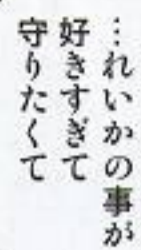 …れいかの事が
好きすぎて
守りたくて